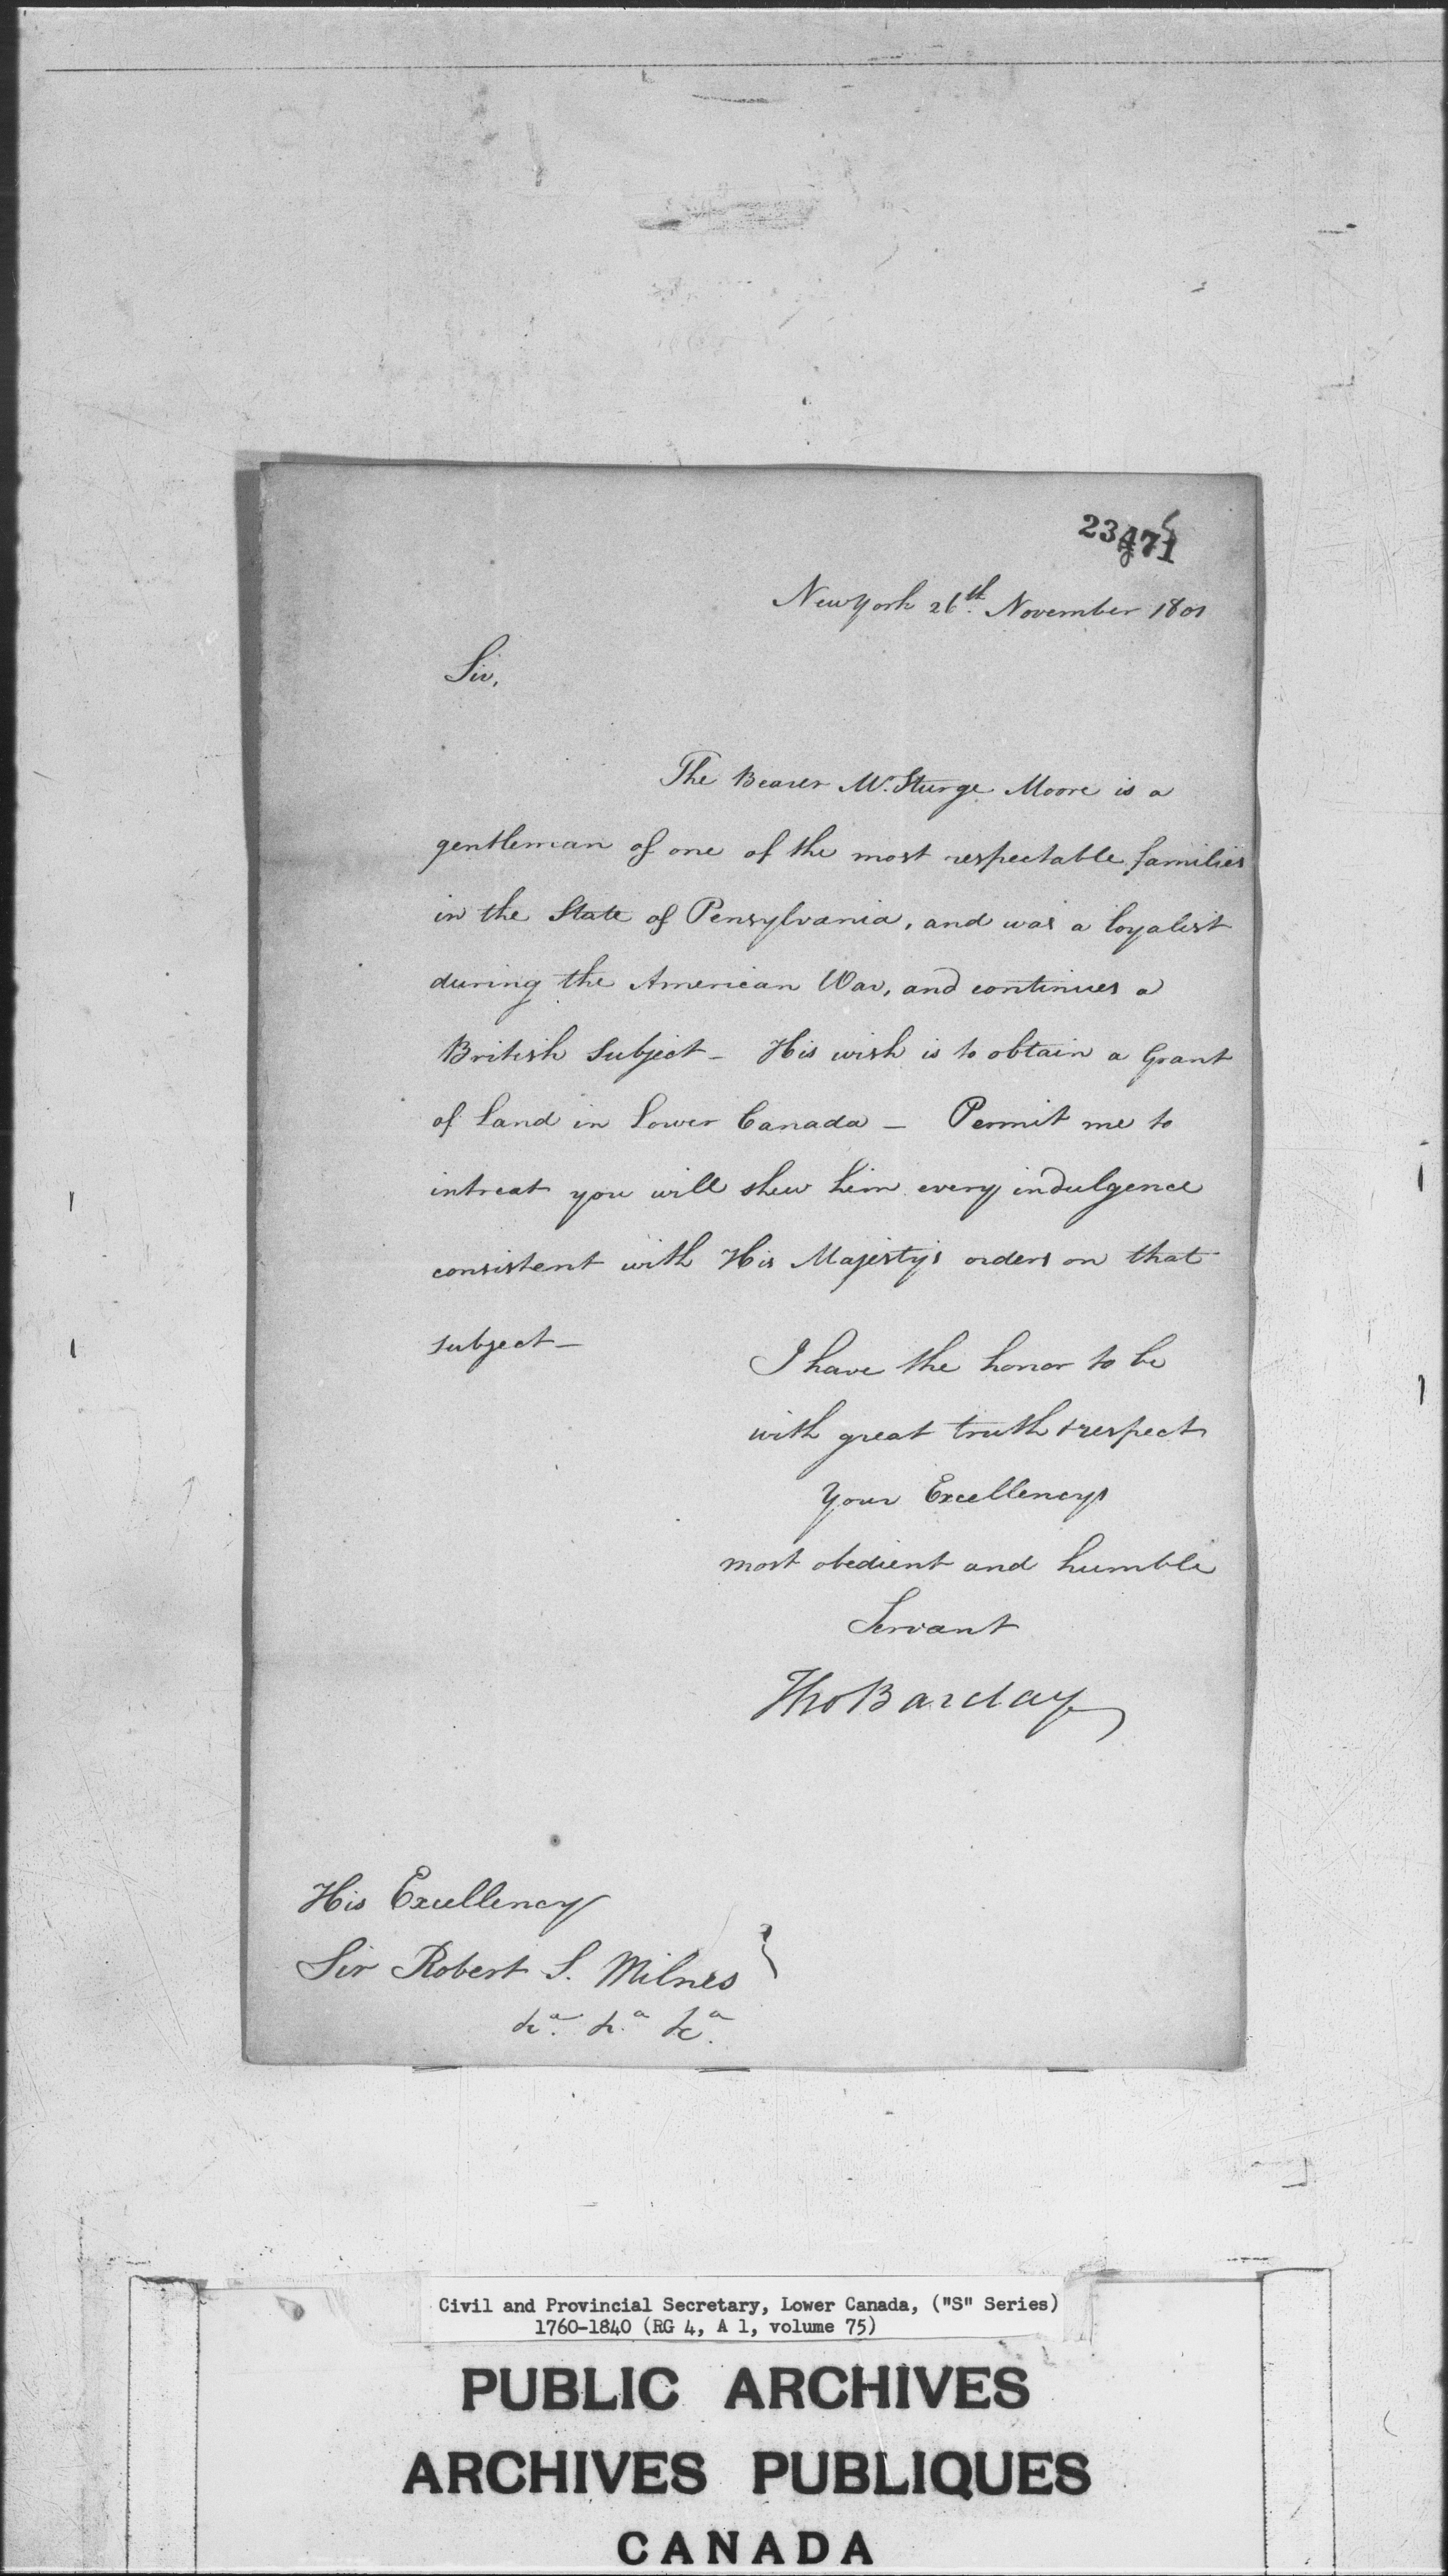 23471
New York 26th. November 1801
Sir,
The Bearer Mr. Sturge Moore is a
gentleman of one of the most respectable families
in the State of Pensylvania, and was a loyalist
during the American War, and continues a
British Subject - His wish is to obtain a Grant
of Land in Lower Canada - Permit me to
intreat you will shew him every indulgence
consistent with His Majesty's orders on that
subject -
I have the honor to be
with great truth & respect
Your Excellencys
most obedient and humble
Servant
Tho Barclay
His Excellency
Sir Robert S. Milnes
&ca. &ca. &ca.
Civil and Provincial Secretary, Lower Canada, ("S" Series)
1760-1840 (RG 4, A 1, volume 75)
PUBLIC ARCHIVES
ARCHIVES PUBLIQUES
CANADA